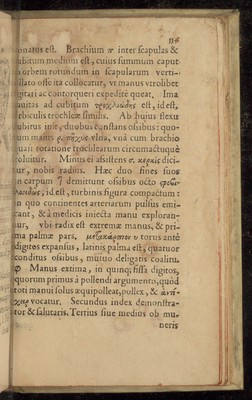 114
onatus est. Brachium æ inter scapulas &
cubitum medium est, cuius summum caput
in orbem rotundum in scapularum verti-
bulato osse ita collocatur, vt manus vtrolibet
agitari ac contorqueri expedite queat. Ima
cauitas ad cubitum τροχλώδης est, id est,
orbiculis trochleæ similis. Ab huius flexu
cubitus inse, duobus constans ossibus: quo-
rum maius πῆχυς vlna, vnà cum brachio
quasi rotatione troclearum circumactuque
voluitur. Minus ei assistens σ. κερκὶς dici-
tur, nobis radius. Hæc duo fines suos
in carpum demittunt ossibus octo
id est, turbinis figura compactum:
in quo continentes arteriarum pulsus emi-
cant, & à medicis iniecta manu exploran-
tur, vbi radix est extremæ manus, & pri-
ma palmæ pars. μετακάρπιον υ torus ante
digitos expansus, latinis palma est, quatuor
conditus ossibus, mutuo deligatis coalitu.
φ Manus extima, in quinq; fissa digitos,
quorum primus à pollendi argumento, quòd
toti manui solus æquipolleat, pollex, & ἀντί-
χειρ vocatur. Secundus index demonstra-
tor & salutaris. Tertius siue medius ob mu-
neris